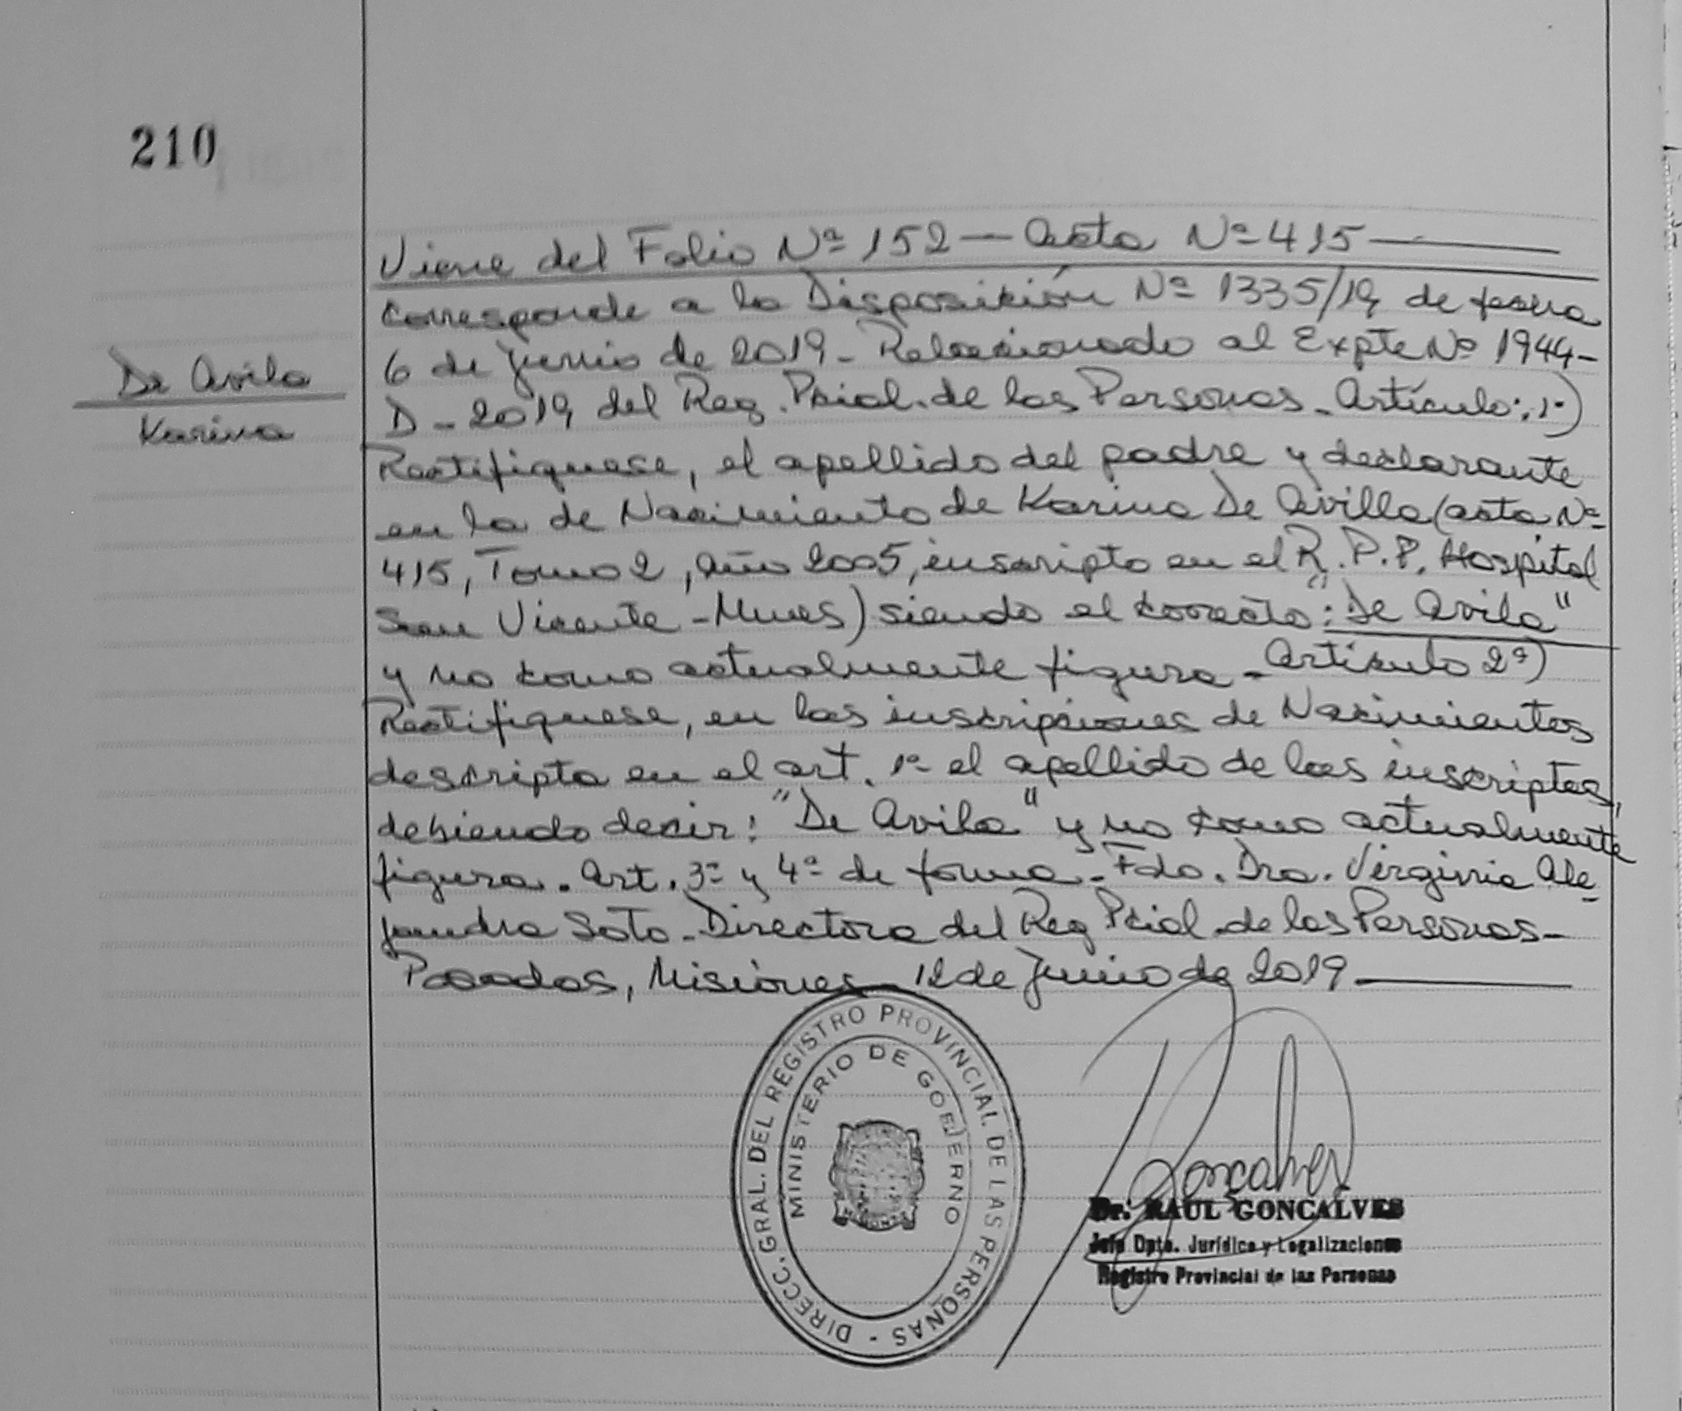 210
Viene del Folio Nº 152 — Acta Nº 415
Corresponde a la Disposición Nº 1335/19, de fecha
6 de Junio de 2019 - Relacionado al Expte Nº 1944-
D - 2019 del Reg. Pcial. de las Personas - Artículo: 1º)
Rectifiquese, el apellido del padre y declarante
en la de Nacimiento de Karina De Avilla (acta Nº
415, Tomo 2, Año 2005, inscripto en el R. P. P. Hospital
San Vicente - Mnes) siendo el correcto: "De Avila"
y no como actualmente figura - Artículo 2º)
Rectifiquese, en las inscripciones de Nacimientos
descripta en el art. 1º el apellido de las inscriptas,
debiendo decir: "De Avila" y no como actualmente
figura. Art. 3º y 4º de forma - Fdo. Dra. Virginia Ale-
jandra Soto - Directora del Reg Pcial. de las Personas -
Posadas, Misiones - 12 de Junio de 2019
De Avila
Karina
DIRECC. GRAL. DEL REGISTRO PROVINCIAL DE LAS PERSONAS -
MINISTERIO DE GOBIERNO
MISIONES
Goncalves
Dr. RAUL GONCALVES
Jefe Dpto. Jurídico y Legalizaciones
Registro Provincial de las Personas